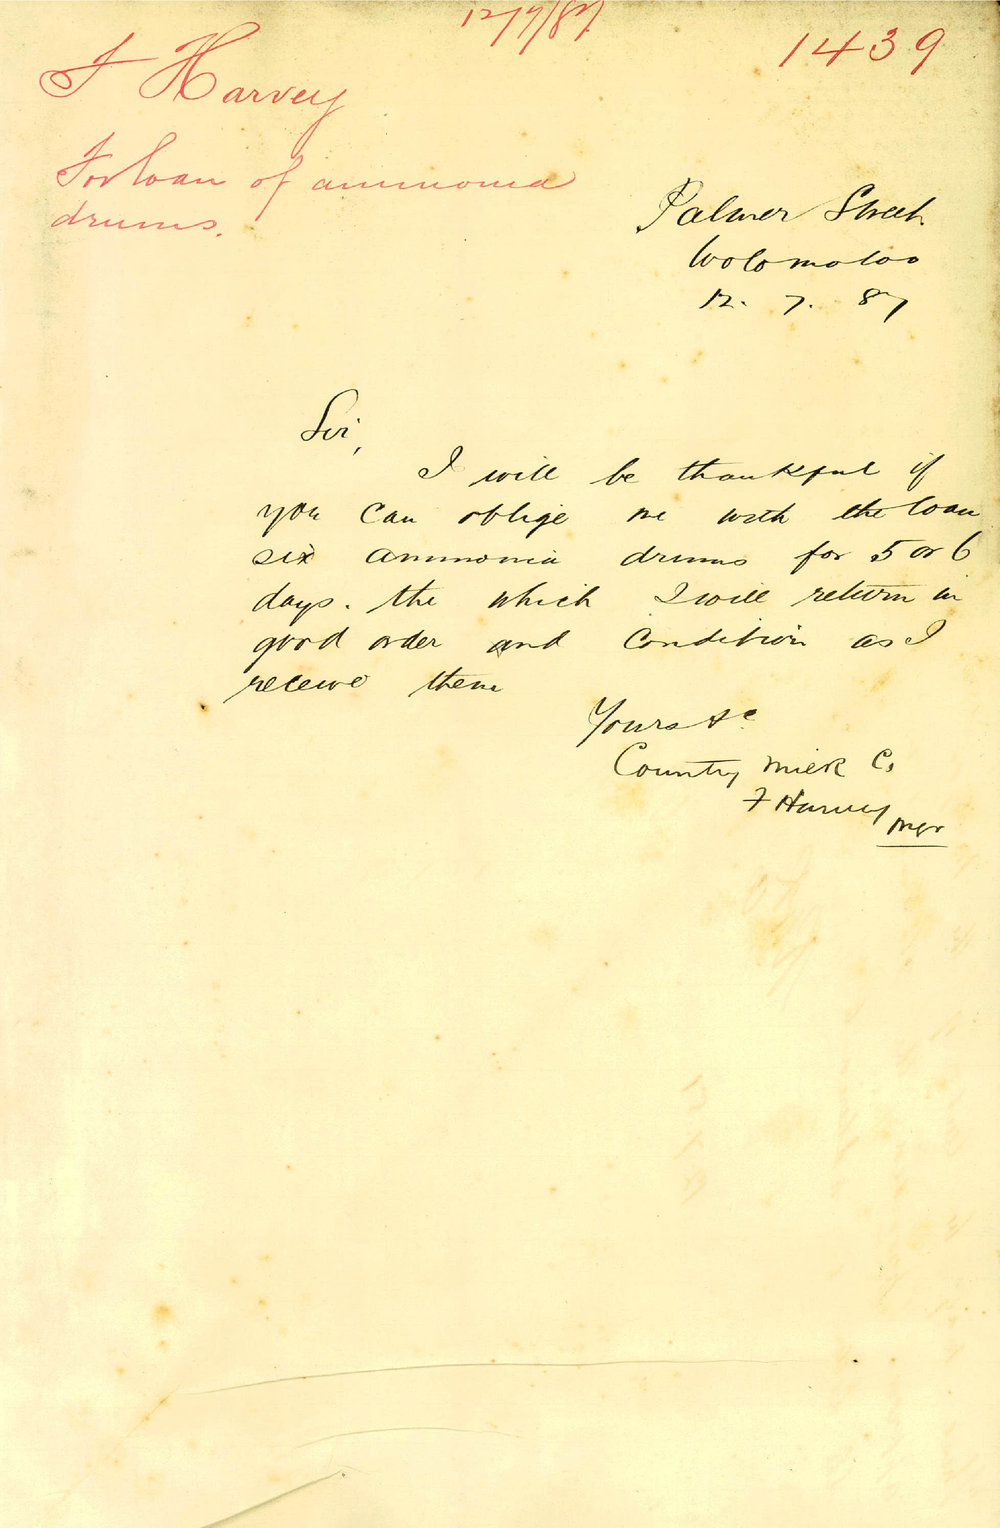 12/7/87
1439
F Harvey
For loan of ammonia
drums.
Palmer Street
Woolomoloo
12. 7. 87
Sir,
I will be thankful if
you can oblige me with the loan
six ammonia drums for 5 or 6
days. the which I will return in
good order and condition as I
receive them
Yours &c
Country Milk Co
F Harvey Mgr